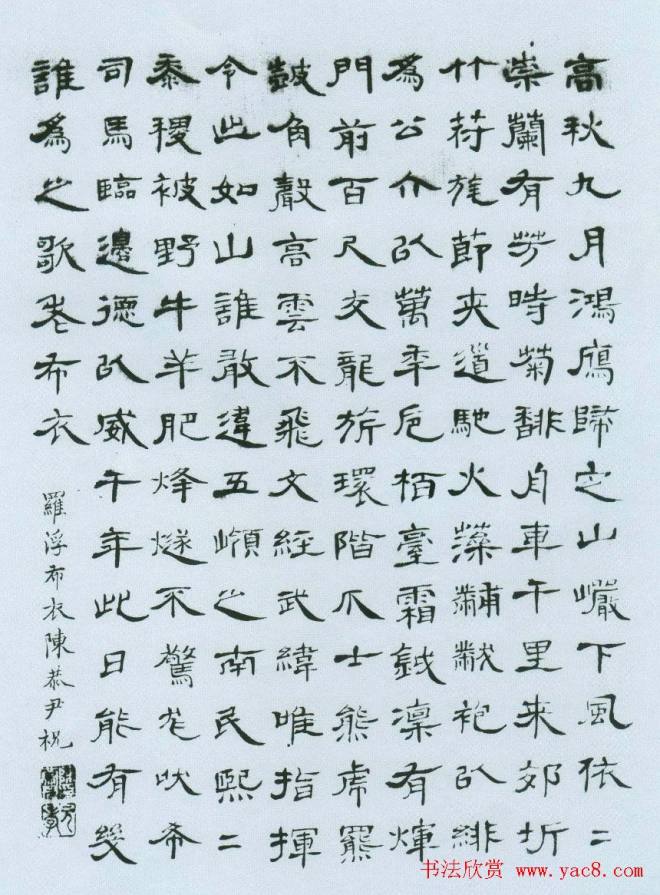 高秋九月鴻鴈歸之山巗下風依二
崇蘭有芳時菊馡車千里来郊圻
竹苻旄節夾道馳火藻黼黻袍以緋
為公介以萬年卮栢臺霜鉞凜有煇
門前百尺交龍旂環階爪士熊虎羆
鼓角聲高雲不飛文經武緯唯指揮
令如山誰敢違五嶺之南民熙二
黍稷被野牛羊肥烽燧不驚尨吠希
司馬臨邊德以威千年此日能有幾
誰為之歌老布衣
羅浮布衣陳恭尹祝
书法欣赏 www.yac8.com